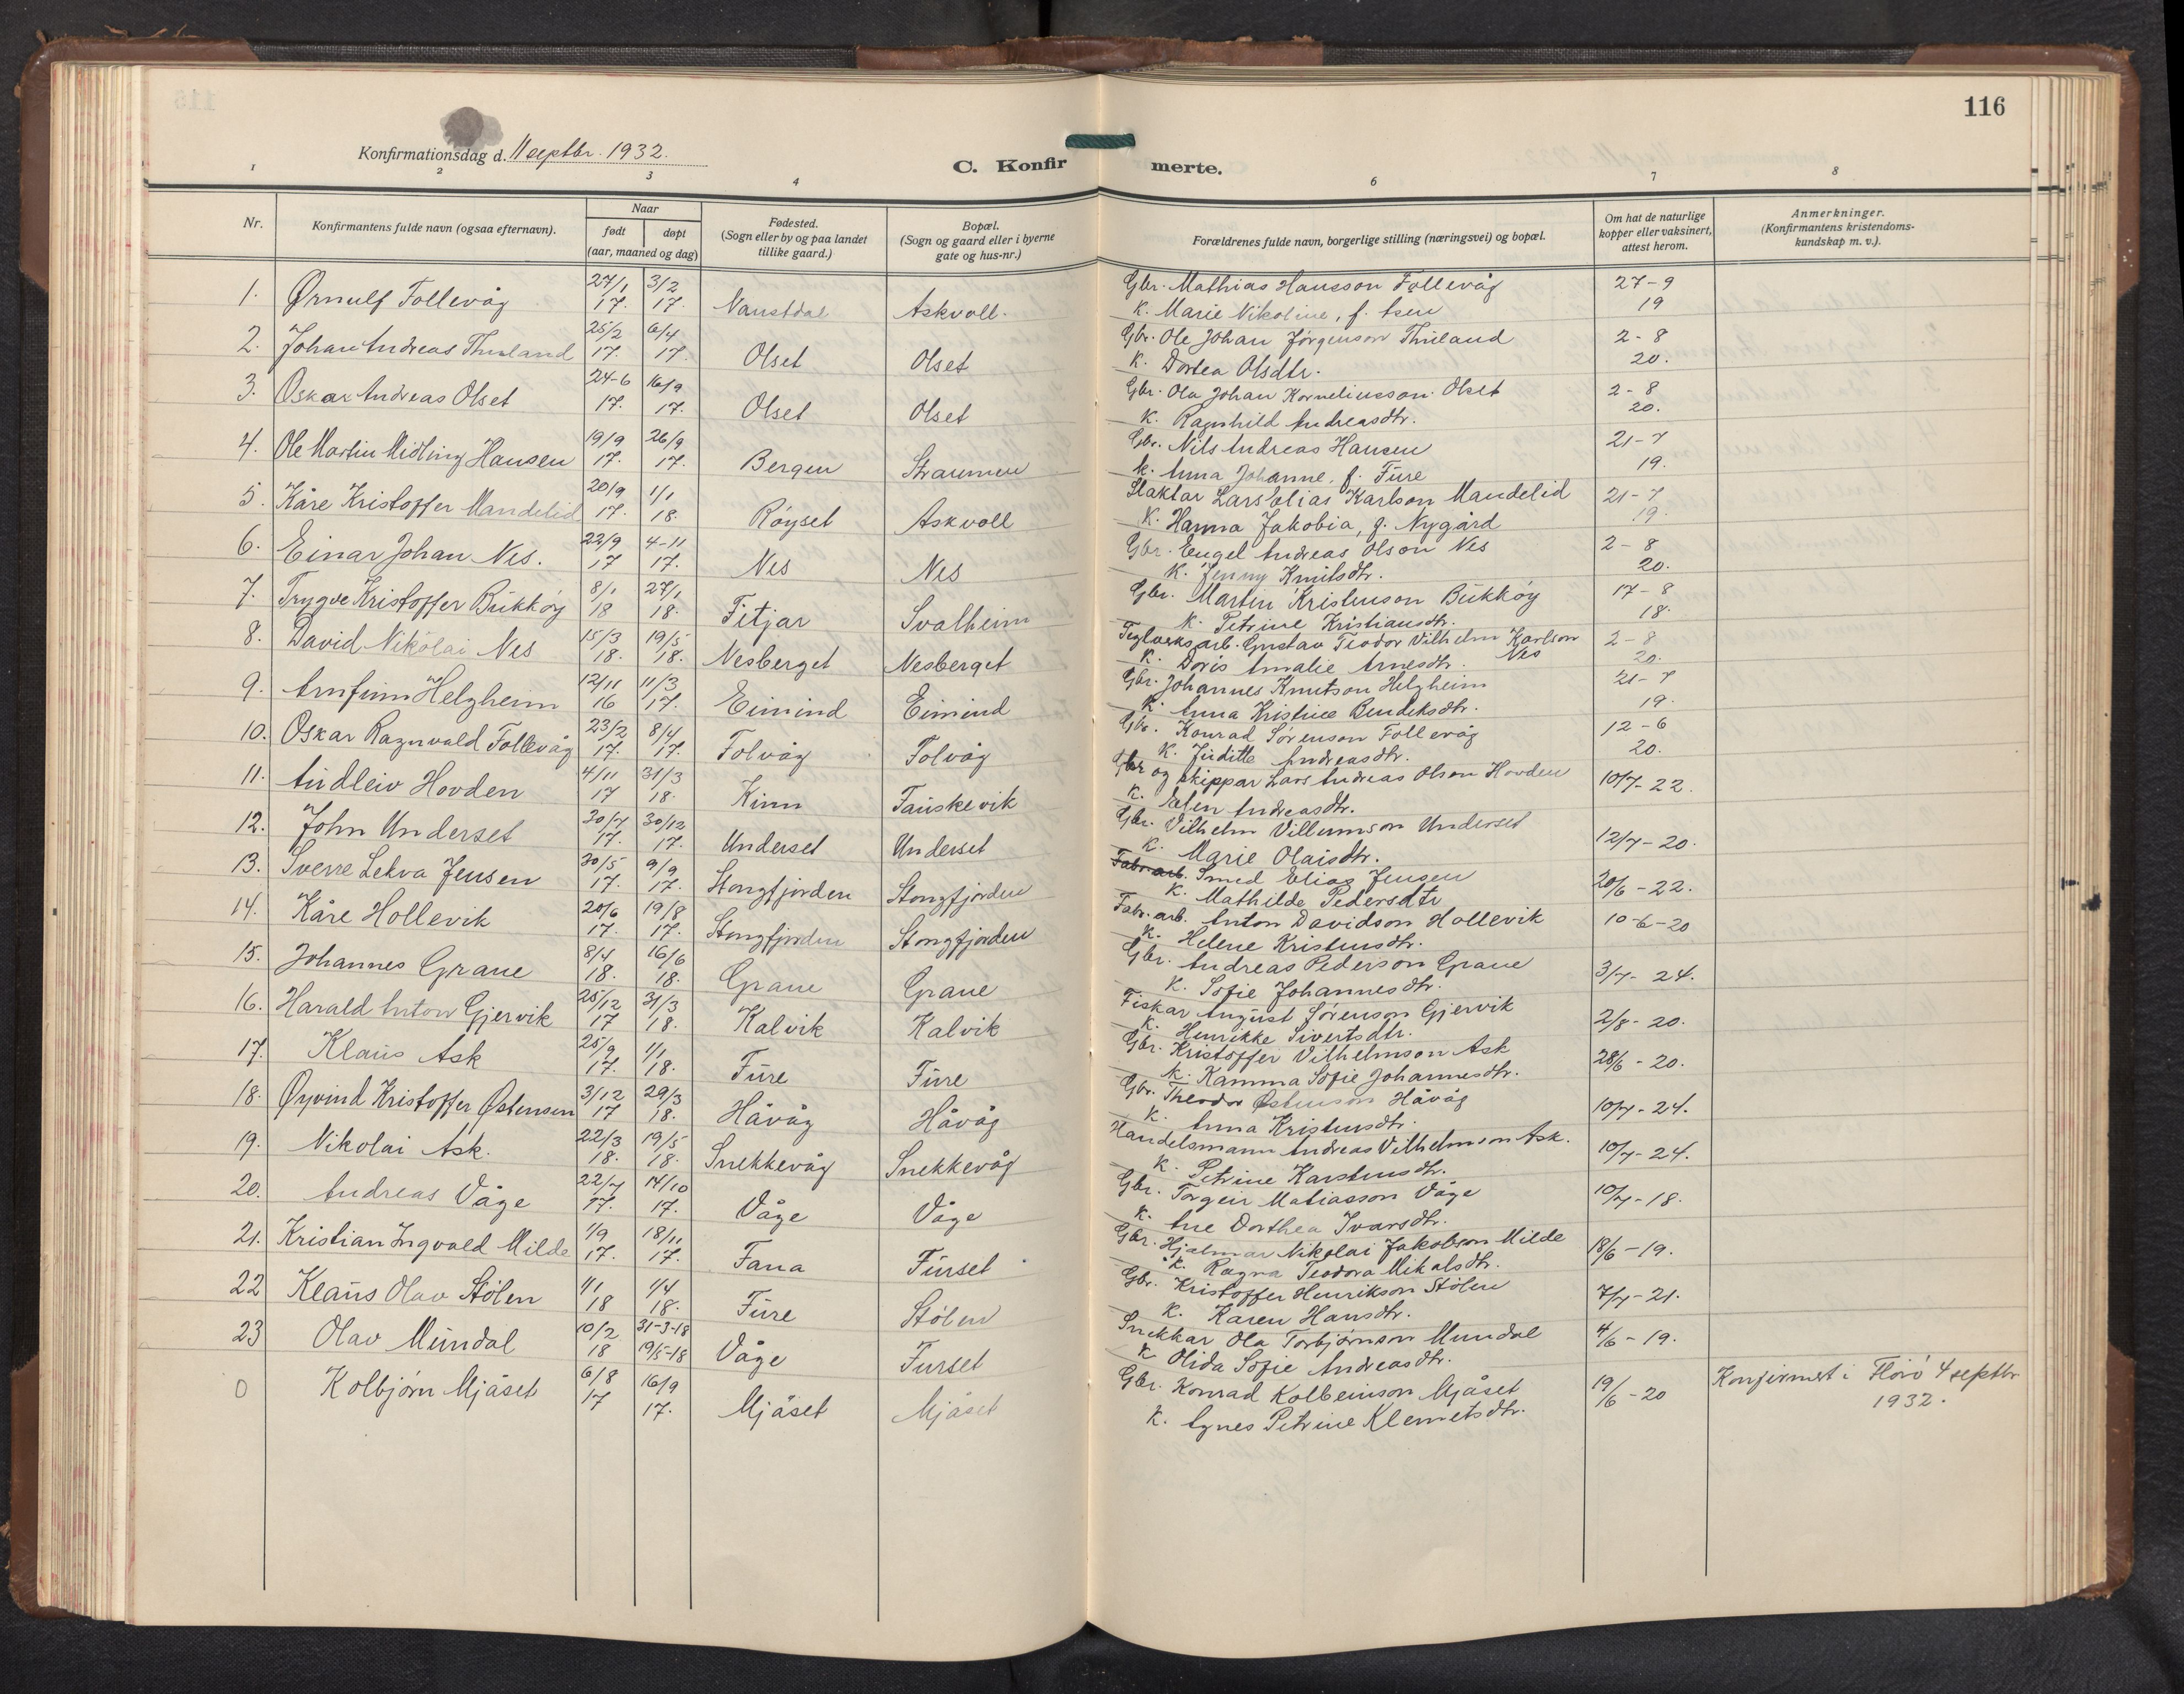 116
Konfirmationsdag d. 11 septbr. 1932.
C. Konfirmerte.
1 2 3 4 6 7 8
Nr. Konfirmantens fulde navn (ogsaa efternavn). Naar født døpt (aar, maaned og dag) Fødested. (Sogn eller by og paa landet tillike gaard.) Bopæl. (Sogn og gaard eller i byerne gate og hus-nr.) Forældrenes fulde navn, borgerlige stilling (næringsvei) og bopæl. Om hat de naturlige kopper eller vaksinert, attest herom. Anmerkninger. (Konfirmantens kristendoms-kundskap m. v.).
1. Ørnulf Follevåg 27/1 17. 3/2 17. Naustdal Askvoll. Gbr. Mathias Hansson Follevåg 27-9 19
K. Marie Nikoline, f.
2. Johan Andreas Thuland 25/2 17. 6/4 17. Olset Olset Gbr. Ole Johan Jørgenson Thuland 2-8 20.
K. Dortea Olsdtr.
3. Oskar Andreas Olset 24-6 17. 16/9 17. Olset Olset Gbr. Ola Johan Korneliusson Olset 2-8 20.
K. Ragnhild Andreasdtr.
4. Ole Martin Midling Hansen 19/9 17. 26/9 17. Bergen Straumen Gbr. Nils Andreas Hansen 21-7 19.
K. Anna Johanne, f. Fure
5. Kåre Kristoffer Mandelid 20/9 17. 1/1 18. Røyset Askvoll Slaktar Lars Elias Karlson Mandelid 21-7 19.
K. Hanna Jakobia, f. Nygård
6. Einar Johan Nes. 22/9 17 4-11 17. Nes Nes Gbr. Engel Andreas Olson Nes 2-8 20.
K. Jenny Knutsdtr.
7. Trygve Kristoffer Bukkøy 8/1 18 27/1 18. Fitjar Svalheim Gbr. Martin Kristenson Bukkøy 17-8 18.
K. Petrine Kristiansdtr.
8. David Nikolai Nes 15/3 18. 19/5 18. Nesberget Nesberget Teglverksarb. Gustav Teodor Vilhelm Karlson Nes 2-8 20.
K. Doris Amalie Arnesdtr.
9. Arnfinn Helgheim 12/11 16 11/3 17. Eimind Eimind Gbr. Johannes Knutson Helgheim 21-7 19.
K. Anna Kristine Bendiksdtr.
10. Oskar Ragnvald Follevåg 23/2 17. 8/4 17. Folvåg Folvåg Gbr. Konrad Sørenson Follevåg 12-6 20.
K. Juditte Andreasdtr.
11. Audleiv Hovden 4/11 17 31/3 18. Kinn Tauskevik Gbr og skippar Lars Andreas Olson Hovden 10/7-22.
K. Elen Andreasdtr.
12. John Underset 30/7 17. 30/12 17. Underset Underset Gbr. Vilhelm Villumson Underset 12/7-20.
K. Marie Olaisdtr.
13. Sverre Lekva Jensen 30/5 17. 9/9 17. Stongfjorden Stongfjorden Fabr.arb. Smed Elias Jensen 20/6-22.
K. Mathilde Pedersdtr
14. Kåre Hollevik 20/6 17. 19/8 17. Stongfjorden Stongfjorden Fabr. arb. Anton Davidson Hollevik 10-6-20
K. Helene Kristensdtr.
15. Johannes Grane 8/4 18. 16/6 18. Grane Grane Gbr. Andreas Pederson Grane 3/7-24.
K. Sofie Johannesdtr.
16. Harald Anton Gjervik 25/12 17 31/3 18. Kalvik Kalvik Fiskar August Sørenson Gjervik 2/8-20.
K. Henrikke Sivertsdtr.
17. Klaus Ask 25/9 17. 1/1 18. Fure Fure Gbr. Kristoffer Vilhelmson Ask 28/6-20.
K. Kamma Sofie Johannesdtr.
18. Øyvind Kristoffer Østensen 3/12 17 29/3 18. Håvåg Håvåg Gbr. Theodor Østenson Håvåg 10/7-24.
K. Anna Kristensdtr.
19. Nikolai Ask. 22/3 18. 19/5 18. Snekkevåg Snekkevåg Handelsmann Andreas Vilhelmson Ask. 10/7-24.
K. Petrine Karstensdtr.
20. Andreas Våge 22/7 17. 14/10 17. Våge Våge Gbr. Torgeir Matiasson Våge 10/7-18.
K. Ane Dorthea Ivarsdtr.
21. Kristian Ingvald Milde 1/9 17. 18/11 17. Fana Furset Gbr. Hjalmar Nikolai Jakobson Milde 18/6-19.
K. Ragna Teodora Mikalsdtr.
22 Klaus Olav Stølen 1/1 18 1/4 18. Fure Stølen Gbr. Kristoffer Henrikson Stølen 7/7-21.
K. Karen Hansdtr.
23 Olav Mundal 10/2 18 31-3-18 19/5-18 Våge Furset Snekkar Ola Torbjørnson Mundal 4/6-19.
K Olida Sofie Andreasdtr.
0 Kolbjørn Mjåset 6/8 17 16/9 17. Mjåset Mjåset Gbr. Konrad Kolbeinson Mjåset 19/6-20 Konfirmert i Florø 4 septbr 1932.
K. Agnes Petrine Klemetsdtr.